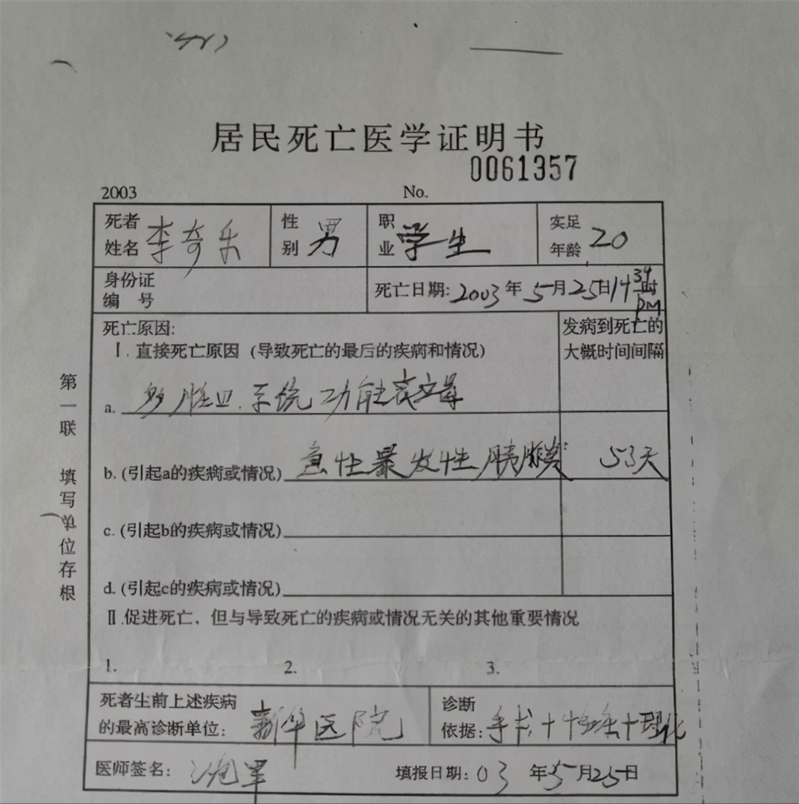 居民死亡医学证明书
0061357
2003 No.
死者姓名 李奇乐 性别 男 职业 学生 实足年龄 20
身份证编号 死亡日期:2003年5月25日14 34时 PM
死亡原因: 发病到死亡的大概时间间隔
Ⅰ.直接死亡原因(导致死亡的最后的疾病和情况)
a. 多脏器系统功能衰竭
b.(引起a的疾病或情况) 急性暴发性胰腺炎 53天
c.(引起b的疾病或情况)
d.(引起c的疾病或情况)
Ⅱ.促进死亡,但与导致死亡的疾病或情况无关的其他重要情况
1. 2. 3.
死者生前上述疾病的最高诊断单位: 新华医院 诊断依据: 手术+临床+理化
医师签名: 填报日期:03年5月25日
第一联 填写单位存根